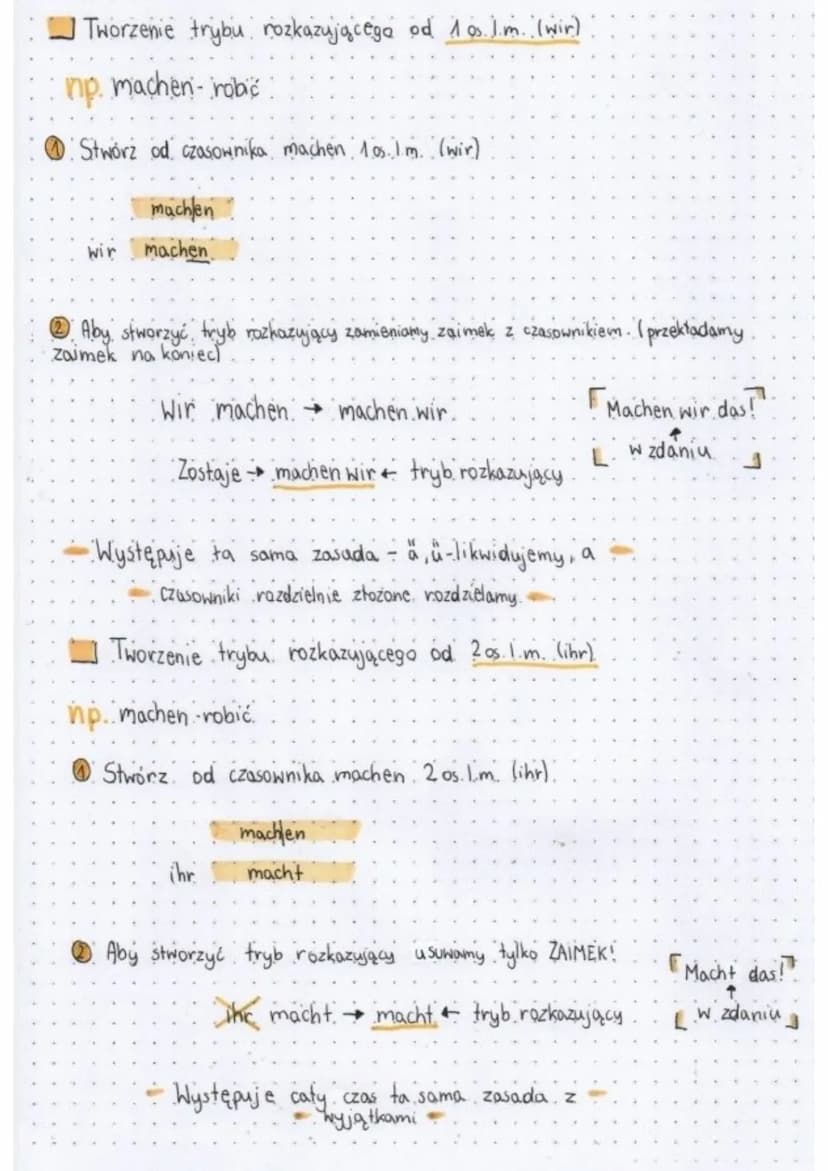 Tworzenie trybu rozkazującego od 1 os. l.m. (wir)
np. machen - robić
① Stwórz od czasownika machen 1 os. l.m. (wir)
mach/en
wir machen
② Aby stworzyć tryb rozkazujący zamieniamy zaimek z czasownikiem. (przekładamy
zaimek na koniec)
Wir machen → machen wir
Machen wir das!
↑
w zdaniu
Zostaje → machen wir ← tryb rozkazujący
- Występuje ta sama zasada - ä, ü - likwidujemy, a -
- czasowniki rozdzielnie złożone rozdzielamy. -
Tworzenie trybu rozkazującego od 2 os. l.m. (ihr)
np. machen - robić
① Stwórz od czasownika machen 2 os. l.m. (ihr)
mach/en
ihr macht
② Aby stworzyć tryb rozkazujący usuwamy tylko ZAIMEK!
Macht das!
↑
w zdaniu
ihr macht → macht ← tryb rozkazujący
- Występuje cały czas ta sama zasada z -
- wyjątkami -